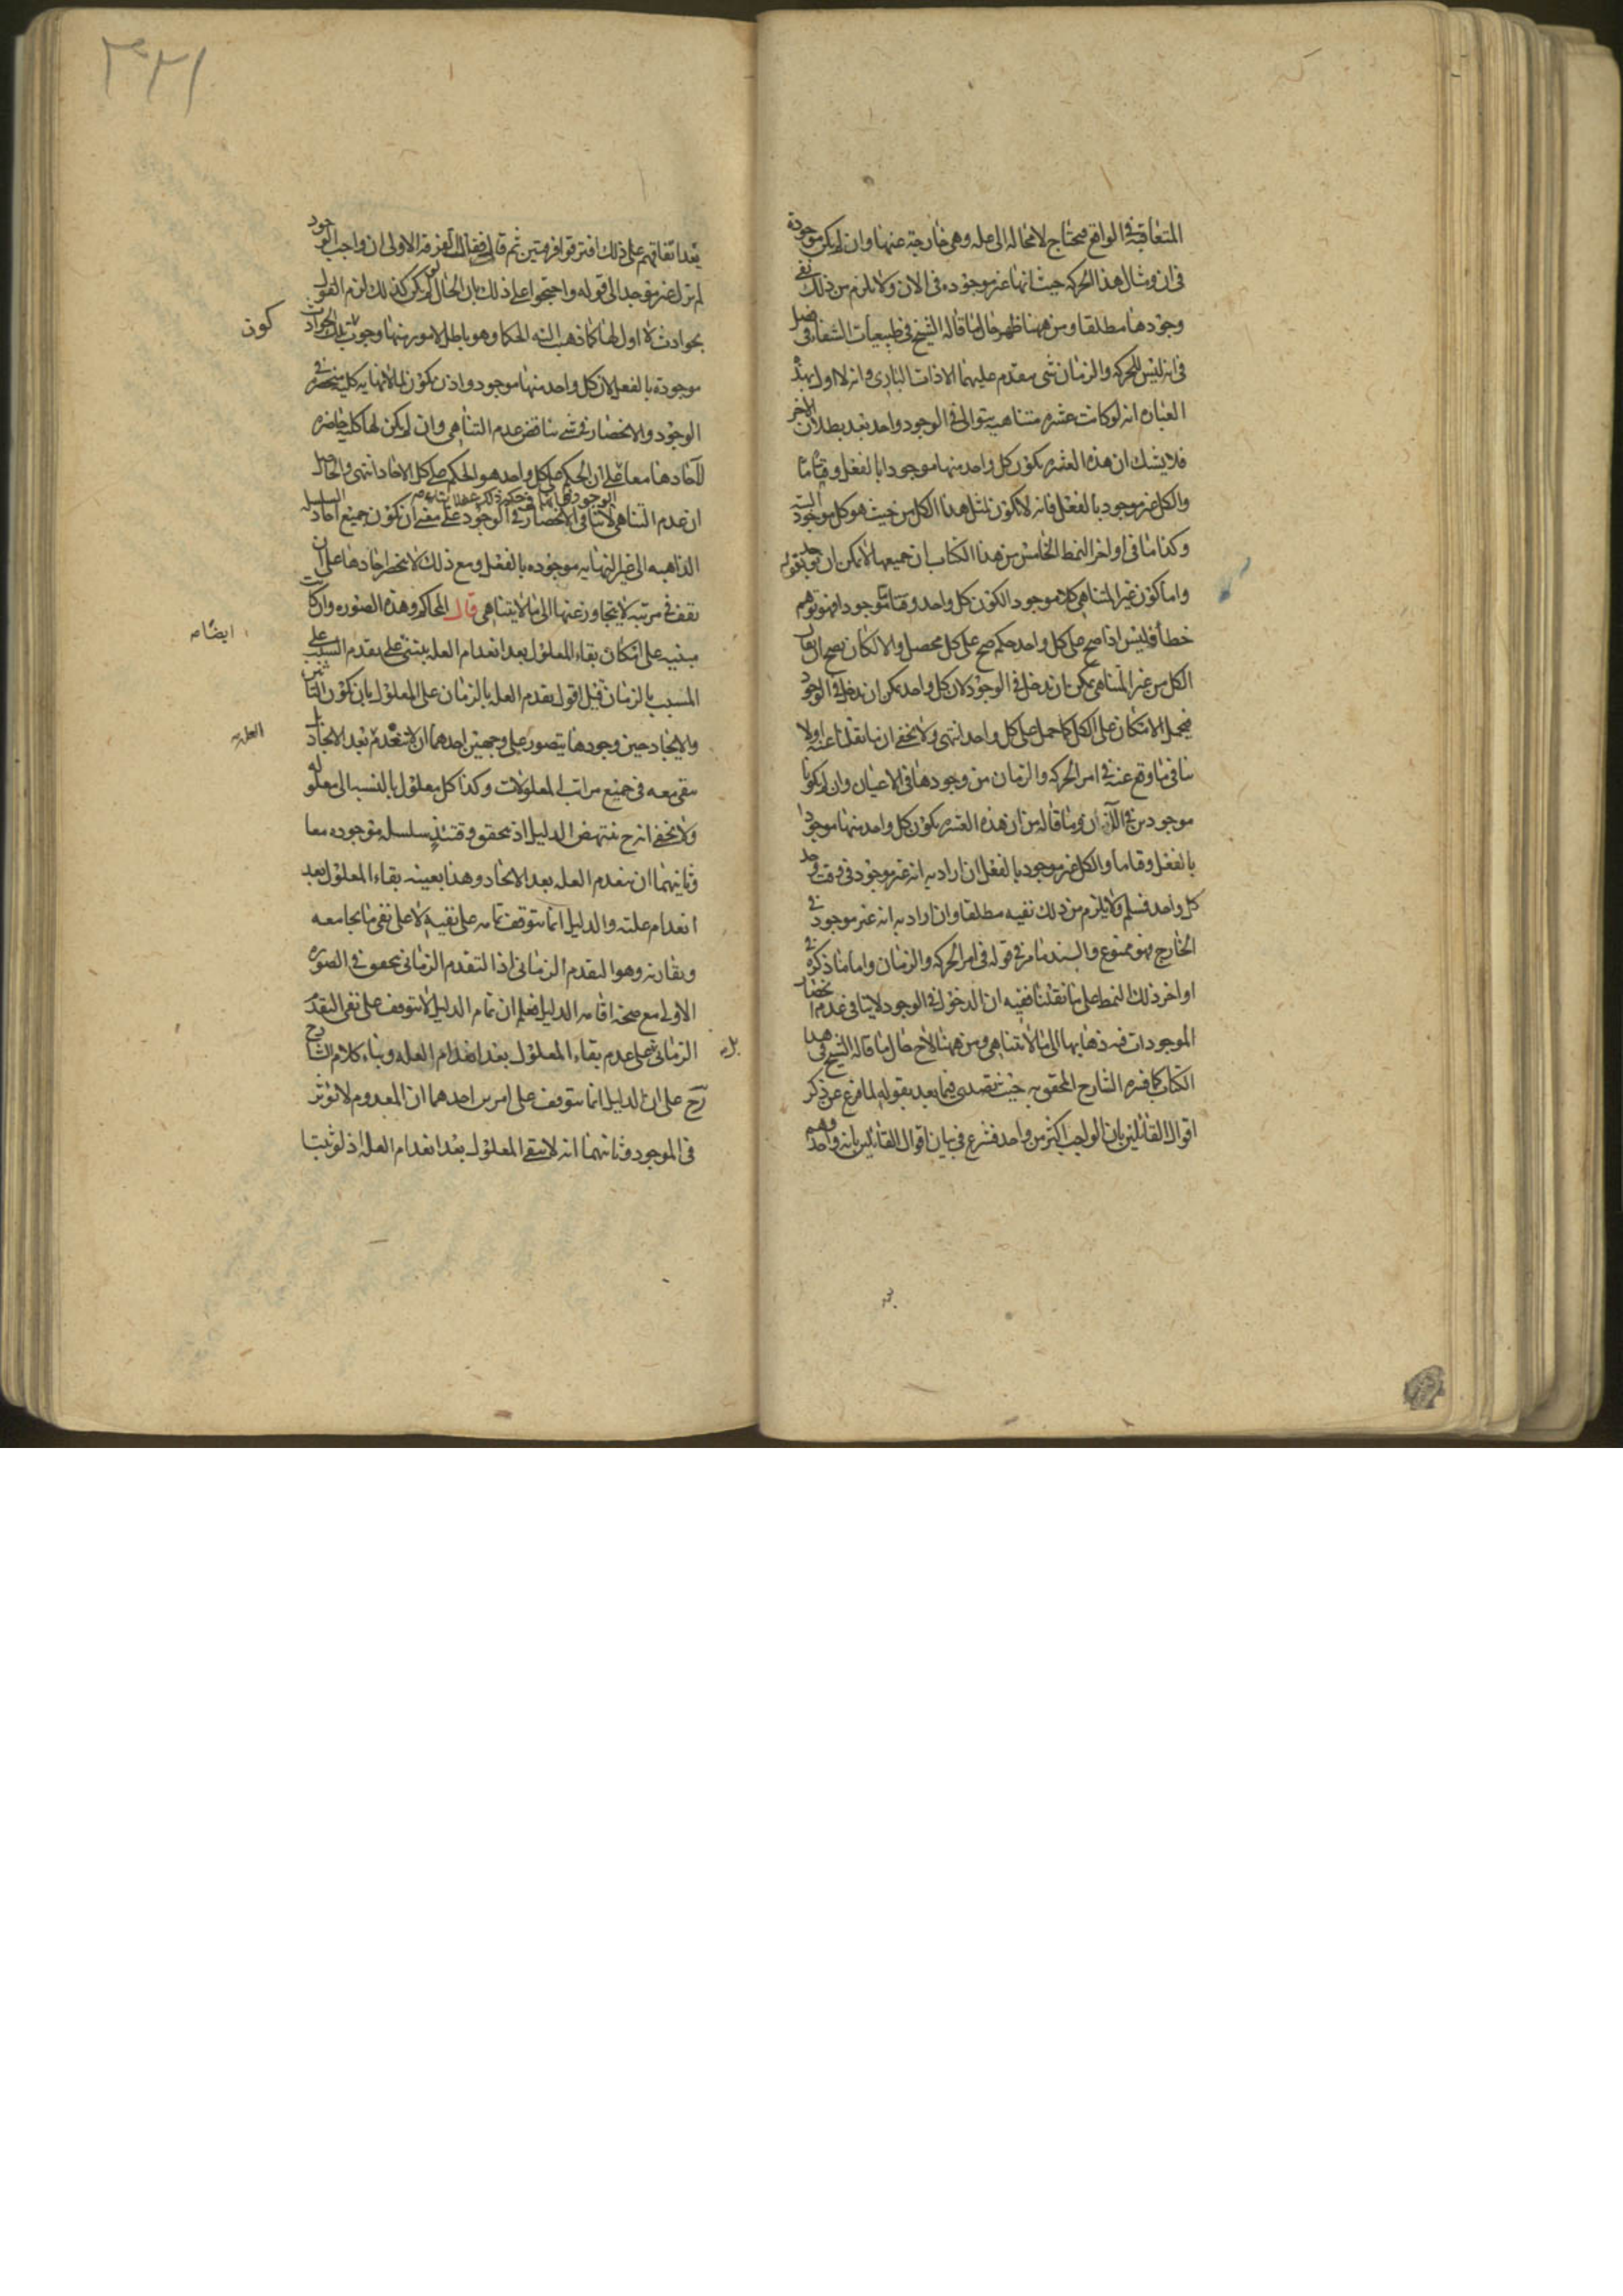 المتعاقبة فى الواقع محتاج لامحالة الى علة وهى خارجة عنها وان لم يكن موجودة
فى ان ومثال هذا الحركة حيث انها غير موجودة فى الان ولا يلزم من ذلك نفى
وجودها مطلقا ومن ههنا ظهر حال ما قاله الشيخ فى طبيعيات الشفا فى فصل
فى انه ليس للحركة والزمان شى متقدم عليهما الا ذات البارى وانه لا اول لهما بهذه
العبارة انه لو كانت عشرة متناهية يتوالى فى الوجود واحد بعد بطلان الاخر
فلا يشك ان هذه العشرة يكون كل واحد منها موجودا بالفعل وقتا ما
والكل غير موجود بالفعل فانه لا يكون لمثل هذا الكل من حيث هو كل موجود البتة
وكذا ما فى اواخر النمط الخامس من هذا الكتاب ان جميعها لا يمكن ان يوجد بقوله
واما كون غير المتناهى كلا موجودا لكون كل واحد وقتا ما موجودا فهو توهم
خطأ فليس اذا صح على كل واحد حكم صح على كل محصل والا لكان يصح ان يقال
الكل من غير المتناهى يمكن بان يدخل فى الوجود لان كل واحد يمكن ان يدخل فى الوجود
فيحمل الامكان على الكل كما حمل على كل واحد انتهى ولا يخفى ان ما نقلنا عنه اولا
ينافى ما وقع عنه فى امر الحركة والزمان من وجودهما فى الاعيان وان لم يكونا
موجودين فى الآن وما قاله من ان هذه العشرة يكون كل واحد منها موجودا
بالفعل وقتا ما والكل غير موجود بالفعل ان اراد به انه غير موجود فى وقت وجد
كل واحد فمسلم ولا يلزم من ذلك نفيه مطلقا وان اراد به انه غير موجود فى
الخارج فهو ممنوع والسند ما مر فى قوله فى امر الحركة والزمان واما ما ذكره فى
اواخر ذلك النمط على ما نقلنا ففيه ان الدخول فى الوجود لا ينافى عدم انحصار
الموجودات فى ذهابها الى ما لا يتناهى ومن ههنا لاح حال ما قاله الشيخ فى هذا
الكتاب كما فسره الشارح المحقق به حيث تصدى فيما بعد بقوله لما فرغ عن ذكر
اقوال القائلين بان الواجب اكثر من واحد فشرع فى بيان اقوال القائلين بانه واحد وهم
٣٣١
بعد اتفاقهم على ذلك افترقوا فرقتين ثم قال فقال الفرقة الاولى ان واجب الوجود
لم يزل غير موجد الى قوله واحتجوا على ذلك بان الحال لو لم يكن كذلك لزم القول
بحوادث لا اول لها كما ذهب اليه الحكما وهو باطل لامور منها وجوب تلك الحوادث
كون
موجودة بالفعل لان كل واحد منها موجود واذن يكون لما لا نهاية كلية منحصرة فى
الوجود والانحصار فى شى يناقض عدم التناهى وان لم يكن لها كلية حاضرة
لآحادها معا على ان الحكم على كل واحد هو الحكم على كل الاحاد انتهى والحاصل
ان عدم التناهى لا ينافى الانحصار فى الوجود على معنى ان يكون جميع احاد السلسلة
الذاهبة الى غير النهاية موجودة بالفعل ومع ذلك لا ينحصر احادها على ان
يقف فى مرتبة لا يتجاوز عنها الى ما لا يتناهى قال المحاكم وهذه الصورة وان كانت
ايضا
مبنية على امكان بقاء المعلول بعد انعدام العلة يبتنى على تقدم السبب على
المسبب بالزمان قيل اقول تقدم العلة بالزمان على المعلول بان يكون التاثير
والايجاد حين وجودها يتصور على وجهين احدهما ان لا تنعدم بعد الايجاد بل
العلة
يبقى معه فى جميع مراتب المعلولات وكذا كل معلول بالنسبة الى معلوله
ولا يخفى انه ح ينتهض الدليل اذ يتحقق وقتئذ سلسلة موجودة معا
وثانيهما ان ينعدم العلة بعد الايجاد وهذا بعينه بقاء المعلول بعد
انعدام علته والدليل انما يتوقف تمامه على نفيه لا على نفى ما يجامعه
ويقارنه وهو التقدم الزمانى اذ التقدم الزمانى يتحقق فى الصورة
الاولى مع صحة اقامة الدليل فعلم ان تمام الدليل لا يتوقف على نفى التقدم
الزمانى على عدم بقاء المعلول بعد انعدام العلة وبناء كلام الشارح
بل
رح على ان الدليل انما يتوقف على امرين احدهما ان المعدوم لا يؤثر
فى الموجود وثانيهما انه لا يبقى المعلول بعد انعدام العلة اذ لو ثبتا